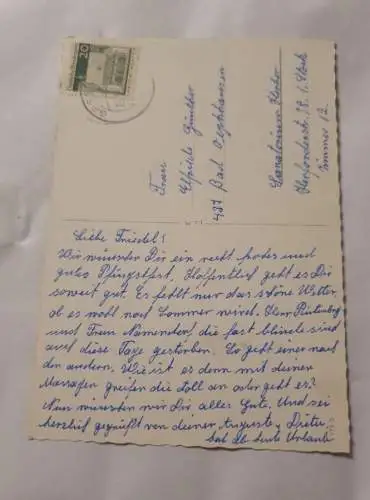 20
Frau
Elfriede Günther
497 Bad Oeynhausen
Sanatorium
Herforderstr.
Zimmer 12
Liebe Friedel!
Wir wünschen Dir ein recht frohes und
gutes Pfingstfest. Hoffentlich geht es Dir
soweit gut. Es fehlt nur das schöne Wetter,
ob es wohl noch Sommer wird. Herr
und Frau die fast blinde sind
auch diese Tage gestorben. So geht einer nach
den andern. Wie ist es denn mit deinen
Massagen greifen die toll an oder geht es?
Nun wünschen wir Dir, alles Gute. Und sei
herzlich gegrüßt von deiner Auguste, Dieter
hat ab heute Urlaub